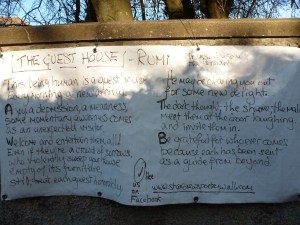 THE GUEST HOUSE! - RUMI
This being human is a guest house
A joy, a depression, a meanness,
some momentary awareness comes
as an unexpected visitor.
Welcome and entertain them all!
Even if they're a crowd of sorrows,
who violently sweep your house
empty of its furniture,
still treat each guest honorably.
He may be clearing you out
for some new delight.
The dark thought, the shame, the malice,
meet them at the door laughing,
and invite them in.
Be grateful for whoever comes,
because each has been sent
as a guide from beyond.
Like
us
on
Facebook